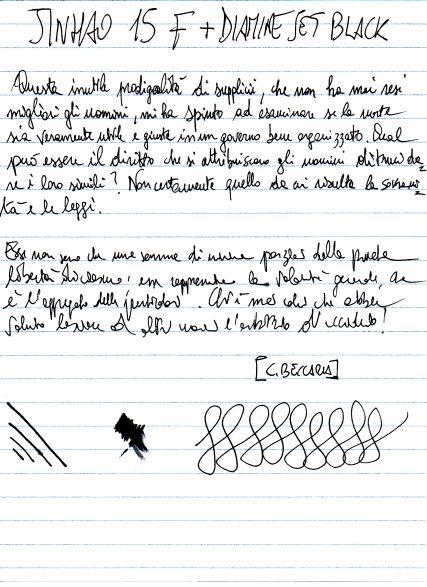 JINHAO 15 F + DIAMINE JET BLACK
Questa inutile prodigalità di supplici, che non ha mai resi
migliori gli uomini, mi ha spinto ad esaminare se la morte
sia veramente utile e giusta in un governo bene organizzato. Qual
può essere il diritto che si attribuiscono gli uomini di trucida=
re i loro simili? Non certamente quello da cui risulta la sovrani=
tà e le leggi.
Esse non sono che una somma di minime porzioni della privata
libertà di ciascuno; esse rappresentano la volontà generale, che
è l'aggregato delle particolari. Chi è mai colui che abbia
voluto lasciare ad altri uomini l'arbitrio di ucciderlo?
[C. BECCARIA]